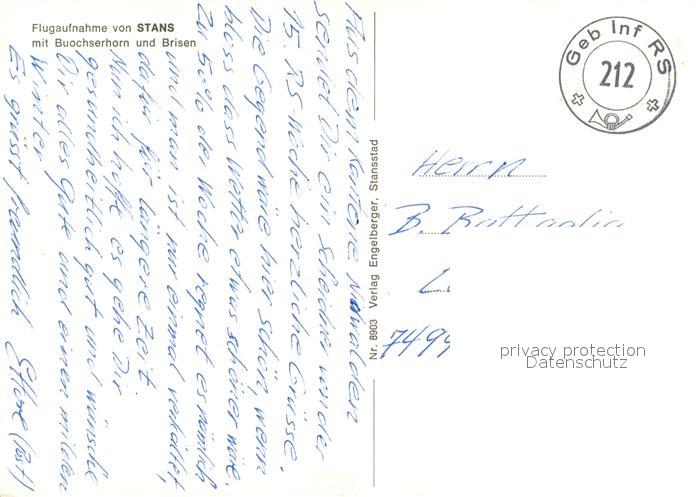 Flugaufnahme von STANS
mit Buochserhorn und Brisen
Aus dem Kanton Nidwalden
sendet Dir ein Scheidn von der
15. RS Woche herzliche Grüsse.
Die Gegend wäre hier schön, wenn
bloss dass Wetter etwas schöner wäre.
Zu 50% der Woche regnet es nämlich
und man ist nur einmal erkältet,
dafür für längere Zeit.
Nun ich hoffe es gehe Dir
gesundheitlich gut und wünsche
Dir alles Gute und einen milden
Winter
Es grüsst freundlich (Post)
Nr. 8903 Verlag Engelberger, Stansstad
Geb Inf RS
212
Herrn
B. Battaglia
L
7499
privacy protection
Datenschutz